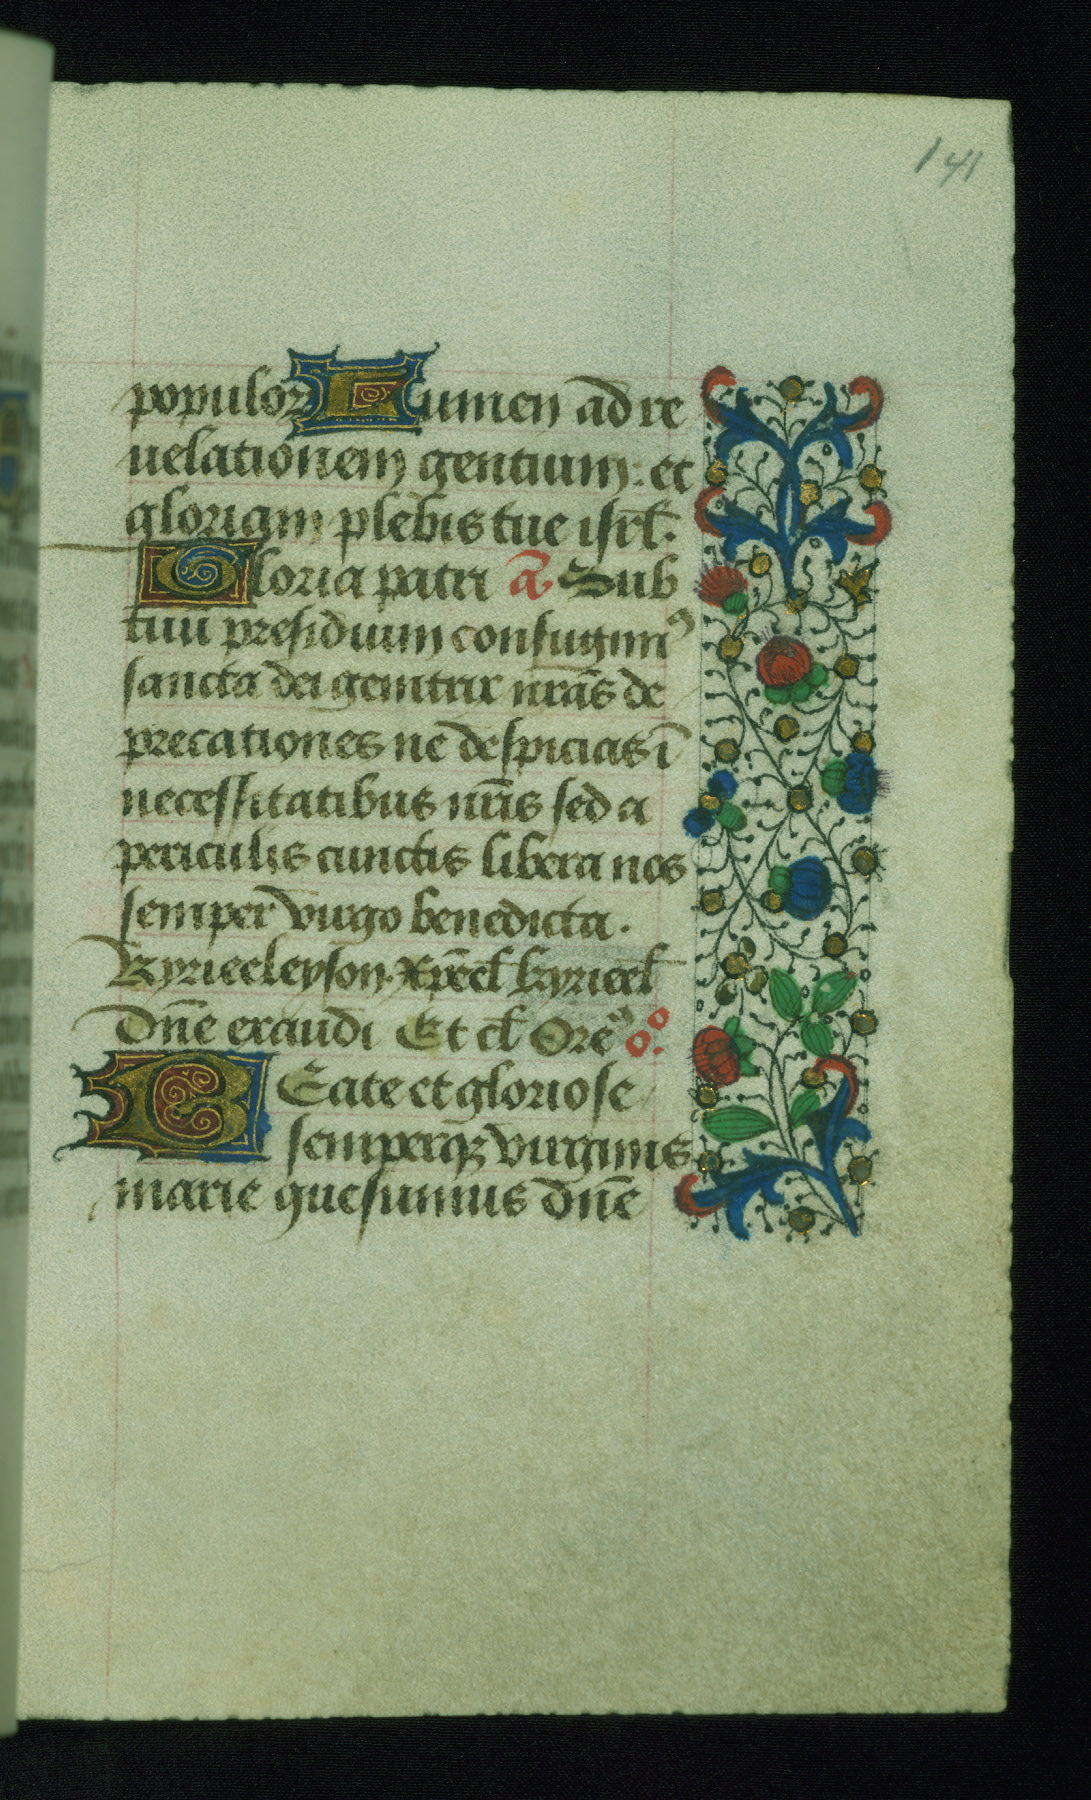 141
populoꝝ Lumen ad re
uelationem gentium: et
gloriam plebis tue isrl̄.
Gloria patri a᷃. Sub
tuū presidium confugimꝰ
sancta dei genitrix nr̄as de
precationes ne despicias ī
necessitatibus nr̄is sed a
periculis cunctis libera nos
semper virgo benedicta.
Kyrieeleyson. Xp̄eel̄ kyrieel̄
Dn̄e exaudi Et cl̄ Orēꝰ oō.
BEate et gloriose
semperqꝫ virginis
marie quesumus dn̄e